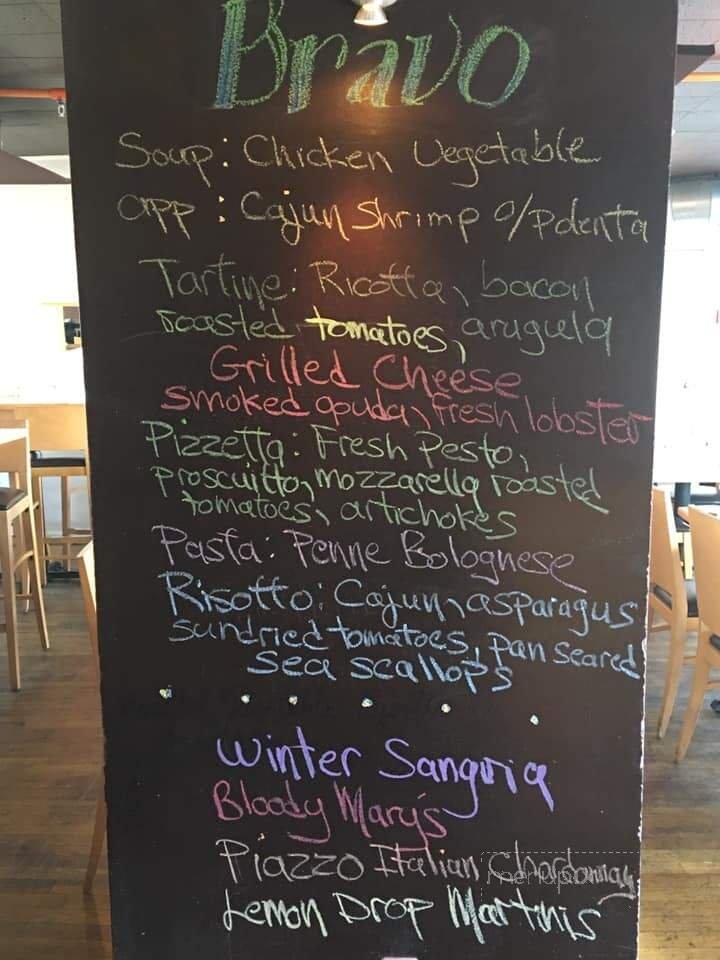 Bravo
Soup: Chicken Vegetable
app: Cajun Shrimp o/Polenta
Tartine: Ricotta, bacon
roasted tomatoes, arugula
Grilled Cheese
smoked gouda, fresh lobster
Pizzetta: Fresh Pesto,
proscuitto, mozzarella roasted
tomatoes, artichokes
Pasta: Penne Bolognese
Risotto: Cajun, asparagus
sundried tomatoes, pan seared
sea scallops
Winter Sangria
Bloody Mary's
Piazzo Italian Chardonnay
Lemon Drop Martinis